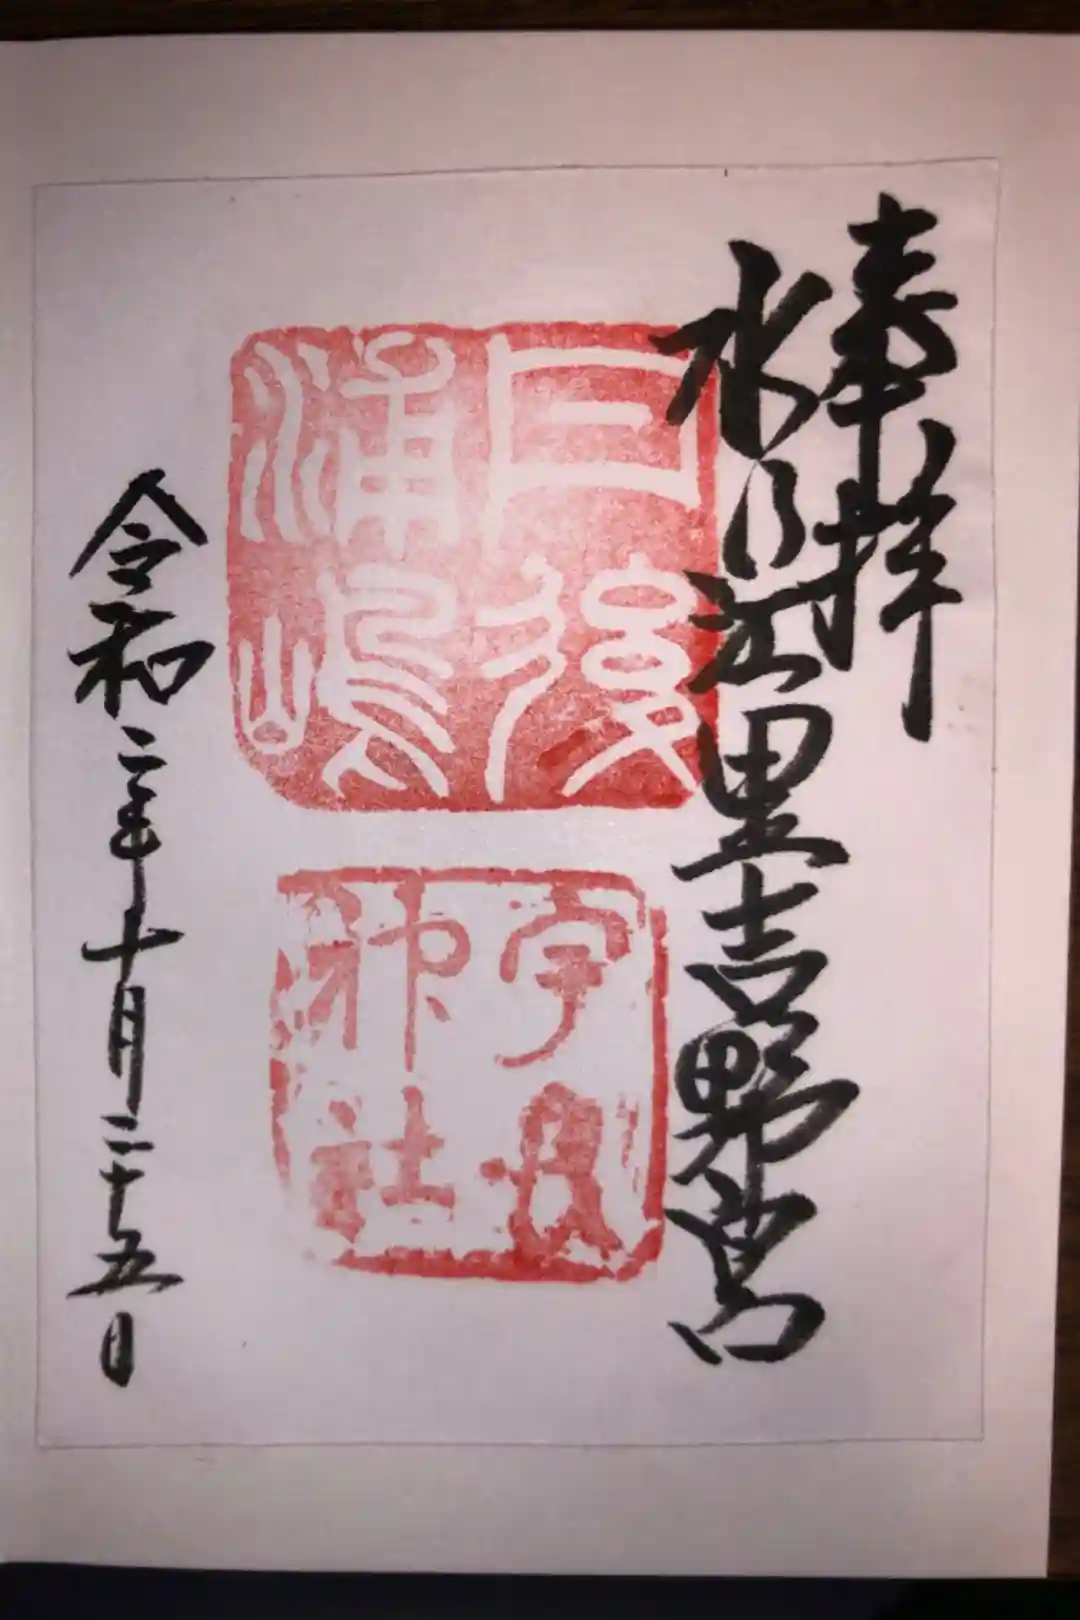 奉拝
水乃江里吉野宮
丹後
浦嶋
宇良
神社
令和二年十月二十五日